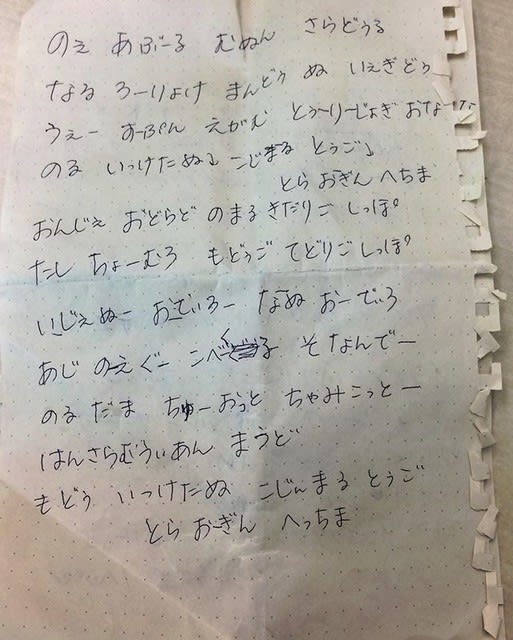 のえ あぶーる むぬん さらどぅる
なる ろーりょけ まんどぅ ぬ いぇぎどぅ
うぇー すーぷん えがむ とぅーりーじょぎ おなーな
のる いっけたぬ」 こじまる とぅご」
とら おぎん へちま
おんじぇ おどらど のまる きだりご しっぽ
たし ちょーむろ もどぅご てどりご しっぽ
いじぇぬー おでぃろー なぬ おーでぃろ
あじ のえぐー こべく る そなんでー
のる だま ちゅーおっと ちゃみこっとー
はんさらむうぃあん まうど
もどぅ いっけたぬ こじんまる とぅご
とら おーぎん へっちま